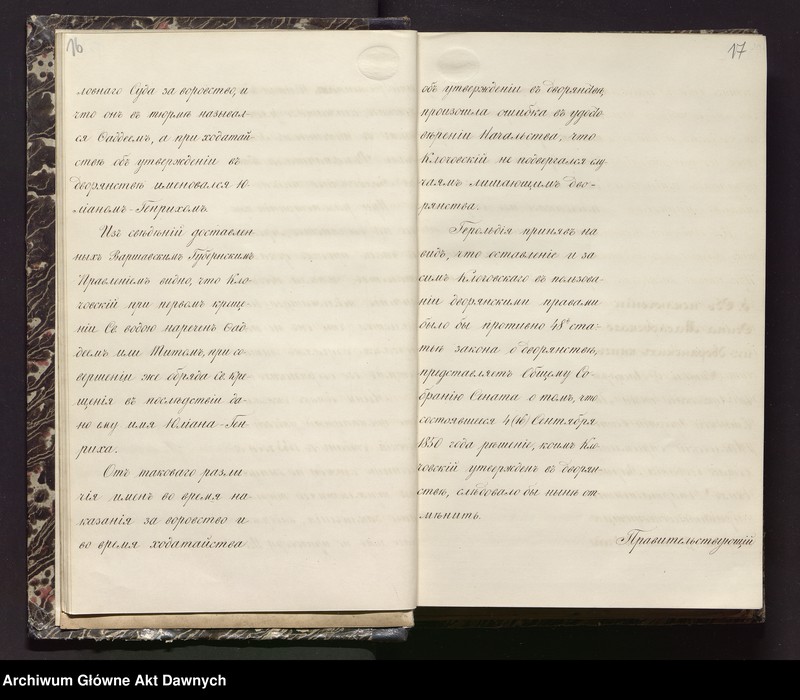 16
ловнаго Суда за воровство, и
что онъ въ тюрмѣ называл-
ся Фаддеемъ, а при ходатай-
ствѣ объ утвержденіи въ
дворянствѣ именовался Ю-
ліаномъ-Генрихомъ.
Изъ свѣдѣній доставлен
ныхъ Варшавскимъ Губернскимъ
Правленіемъ видно, что Кло-
човскій при первомъ креще-
ніи Св. водою нареченъ Фад-
деемъ или Титомъ, при со-
вершеніи же обряда Св. Кре-
щенія въ послѣдствіи да-
но ему имя Юліана-Ген-
риха.
Отъ таковаго разли
чія именъ во время на
казанія за воровство и
во время ходатайства
17
объ утвержденіи въ дворянствѣ,
произошла ошибка въ удосто
вѣреніи Начальства, что
Клочовскій не подвергался слу-
чаямъ лишающимъ дво-
рянства.
Герольдія принявъ на
видъ, что оставленіе и за
симъ Клочовскаго въ пользова-
ніи дворянскими правами
было бы противно 48й ста-
тьѣ закона о дворянствѣ,
представляетъ Общему Со-
бранію Сената о томъ, что
состоявшееся 4 (16) Сентября
1850 года рѣшеніе, коимъ Кло-
човскій утвержденъ въ дворян-
ствѣ, слѣдовало бы нынѣ от
мѣнить.
Правительствующій
Archiwum Główne Akt Dawnych